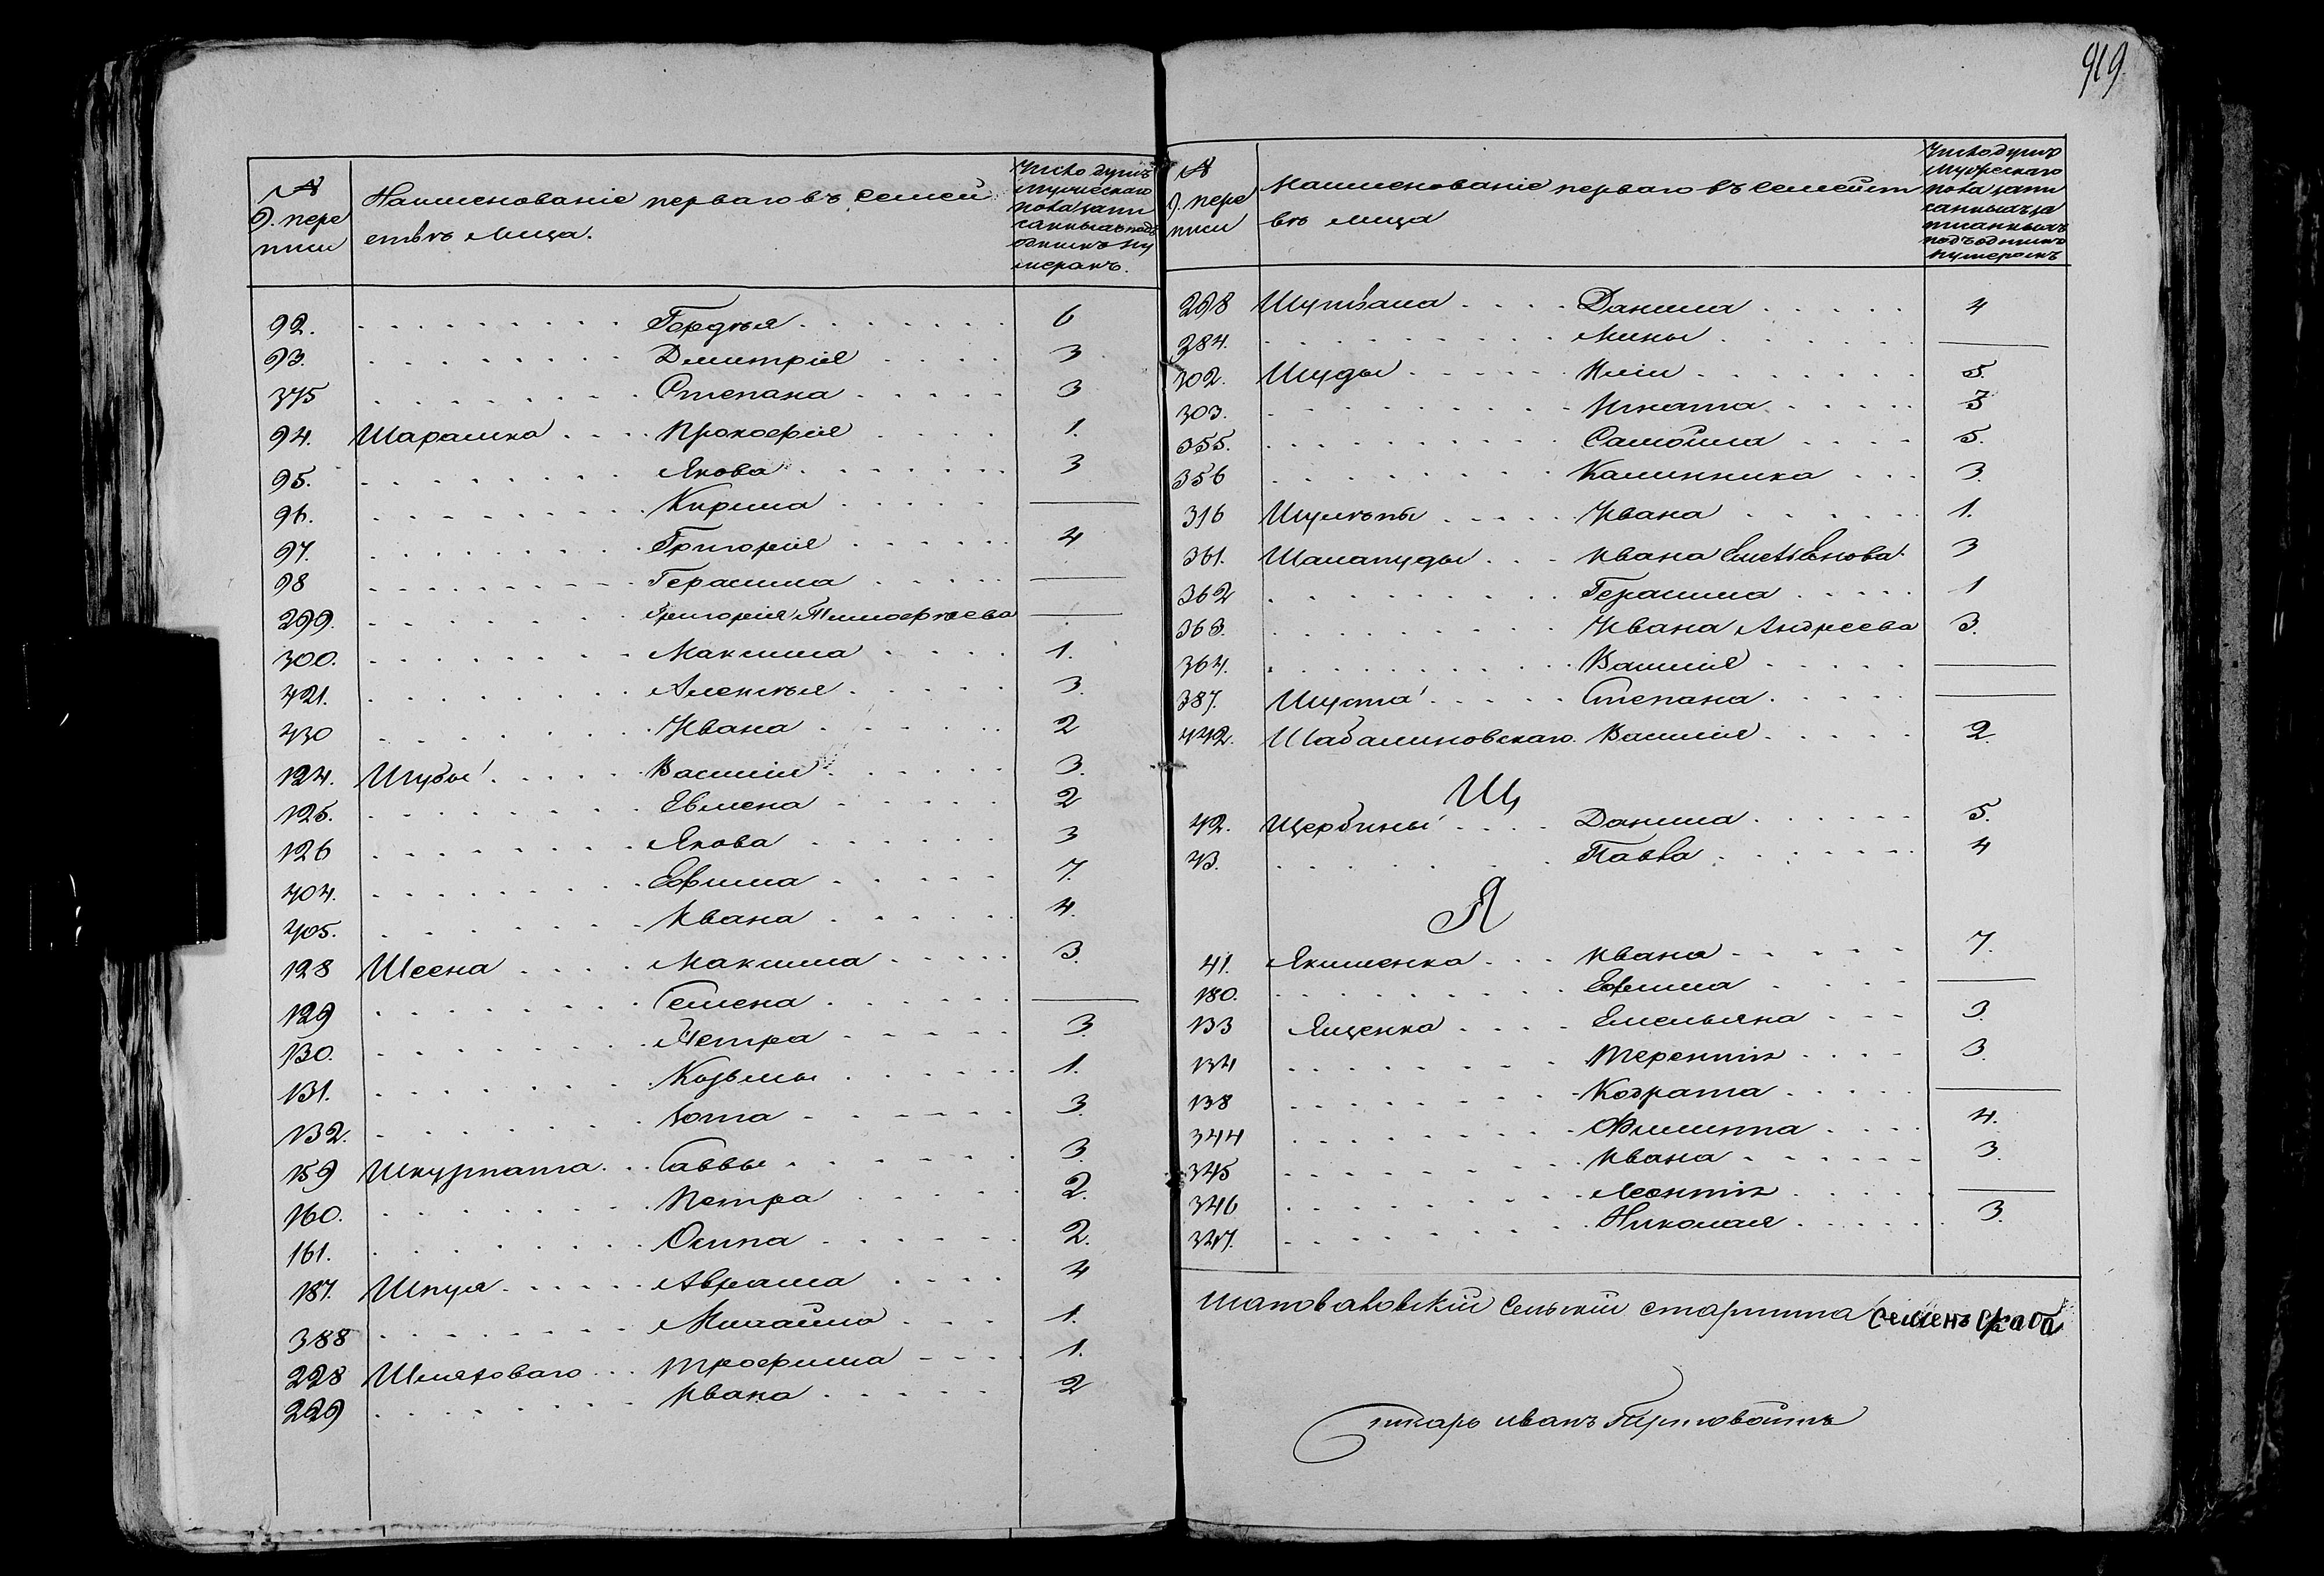 919.
№ 9. переписи
Наименованіе перваго въ семей
ствѣ лица.
Число душъ
мужескаго
пола запи
санныхъ подъ
однимъ ну
меромъ.
92. Гордѣя 6
93. Дмитрія 3
375 Степана 3
94. Шарамка Прокофія 1.
95. Якова 3
96. Кирила —
97. Григорія 4
98 Герасима —
299. Григорія Тимофѣева —
300. Максима 1.
421. Алексѣя 3.
430 Ивана 2
124. Шубы Василія 3.
125. Евмена 2
126 Якова 3
404. Ефима 7.
405. Ивана 4.
128 Шеена Максима 3.
129 Семена —
130. Петра 3.
131. Козьмы 1.
132. Іота 3.
159 Шкурпата Саввы 3.
160. Петра 2.
161. Осипа 2.
187. Шпуя Аврама 4
388 Михайла 1.
228 Шляховаго Трофима 1.
229 Ивана 2
№ 9. переписи
Наименованіе перваго въ семейст
вѣ лица
Число душъ
мужескаго
пола запи
санныхъ за
писанныхъ
подъ однимъ
нумеромъ
298 Данила 4
384. Мины —
302. Шуды Иліи 5.
303. Игната 3
355. Самойла 5.
356 Калинника 3.
316 Ивана 1.
361. Шалапуды Ивана Емельянова 3
362 Герасима 1
363. Ивана Андреева 3.
364. Василія —
387. Шуста Степана —
442. Шабалиновскаго Василія 2.
Щ
42. Щербины Данила 5.
43. Павла 4
Я
41. Якименка Ивана 7.
180. Ефима —
133 Ященка Емельяна 3.
134 Терентія 3.
138 Кодрата —
344 Филиппа 4.
345 Ивана 3.
346 Леонтія —
347. Николая 3.
Шаповаловскій сельскій старшина Семенъ Скаба
Писарь Иванъ